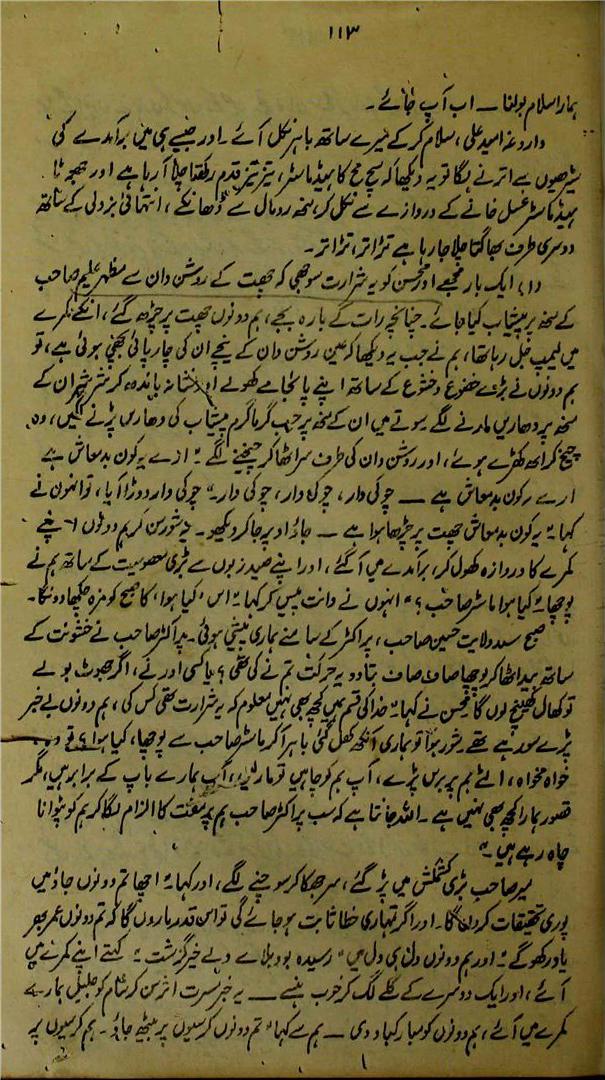 ۱۱۳
ہمارا سلام بولنا — اب آپ جائے۔
داروغہ امید علی، سلام کر کے میرے ساتھ باہر نکل آئے۔ اور جیسے ہی میں برآمدے کی
سیڑھیوں سے اترنے لگا تو یہ دیکھا کہ سچ مچ کا ہیڈ ماسٹر، تیز تیز قدم رکھتا چلا آ رہا ہے اور
ہیڈ ماسٹر غسل خانے کے دروازے سے نکل کر، منھ رومال سے ڈھانکے، انتہائی بزدلی کے ساتھ
دوسری طرف بھاگتا چلا جا رہا ہے تڑاتڑ، تڑاتڑ۔
ایک بار مجھے اور محسن کو یہ شرارت سوجھی کہ چھت کے روشن دان سے مظہر علیم صاحب
کے منھ پر پیشاب کیا جائے۔ چنانچہ رات کے بارہ بجے، ہم دونوں چھت پر چڑھ گئے، انکے کمرے
میں لیمپ جل رہا تھا، ہم نے جب یہ دیکھا کہ عین روشن دان کے نیچے ان کی چارپائی بچھی ہوئی ہے، تو
ہم دونوں نے بڑے خضوع و خشوع کے ساتھ اپنے پائجامے کھولے اور نشانہ باندھ کر شرشر ان کے
منھ پر دھاریں مارنے لگے۔ سوتے میں ان کے منھ پر جب گرماگرم پیشاب کی دھاریں پڑنے لگیں، وہ
چیخ کر اٹھ کھڑے ہوئے، اور روشن دان کی طرف سر اٹھا کر چیخنے لگے "ارے یہ کون بدمعاش ہے
ارے یہ کون بدمعاش ہے — چوکی دار، چوکی دار، چوکی دار۔" چوکی دار دوڑا آیا، تو انہوں نے
کہا "یہ کون بدمعاش چھت پر چڑھا ہوا ہے — جاؤ اوپر جا کر دیکھو۔ یہ شور سن کر ہم دونوں اپنے
کمرے کا دروازہ کھول کر، برآمدے میں آ گئے، اور اپنے صیدِ زبوں سے بڑی معصومیت کے ساتھ ہم نے
پوچھا "کیا ہوا ماسٹر صاحب؟" انہوں نے دانت پیس کر کہا "اس 'کیا ہوا' کا صبح کو مزہ چکھا دونگا۔
صبح سید ولایت حسین صاحب، پراکٹر کے سامنے ہماری پیشی ہوئی۔ پراکٹر صاحب نے خشونت کے
ساتھ بید اٹھا کر پوچھا صاف صاف بتا دو یہ حرکت تم نے کی تھی؟ یا کسی اور نے، اگر جھوٹ بولے
تو کھال کھینچ لوں گا۔ محسن نے کہا "خدا کی قسم ہمیں کچھ بھی نہیں معلوم کہ یہ شرارت تھی کس کی، ہم دونوں بے خبر
پڑے سو رہے تھے۔ شور ہوا تو ہماری آنکھ کھل گئی باہر آ کر ماسٹر صاحب سے پوچھا، کیا ہوا؟ تو وہ،
خواہ مخواہ، الٹے ہم پر برس پڑے، آپ ہم کو چاہیں تو مار لیں، آپ ہمارے باپ کے برابر ہیں، مگر
قصور ہمارا کچھ بھی نہیں ہے۔ اللہ جانتا ہے کہ سب پراکٹر صاحب ہم پر مفت کا الزام لگا کر ہم کو پٹوانا
چاہ رہے ہیں۔"
میر صاحب بڑی کشمکش میں پڑ گئے، سر جھکا کر سوچنے لگے، اور کہا "اچھا تم دونوں جاؤ میں
پوری تحقیقات کروں گا۔ اور اگر تمہاری خطا ثابت ہو جائے گی تو اس قدر ماروں گا کہ تم دونوں عمر بھر
یاد رکھو گے" اور ہم دونوں دل ہی دل میں "رسیدہ بود بلائے ولے بخیر گزشت" کہتے اپنے کمرے میں
آئے، اور ایک دوسرے کے گلے لگ کر خوب ہنسے — یہ خبرِ مسرت اثر سن کر شام کو جلیلی ہمارے
کمرے میں آئے، ہم دونوں کو مبارکباد دی — ہم سے کہا "تم دونوں کرسیوں پر بیٹھ جاؤ۔ ہم کرسیوں پر